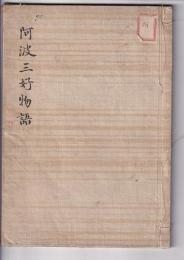 阿波三好物語